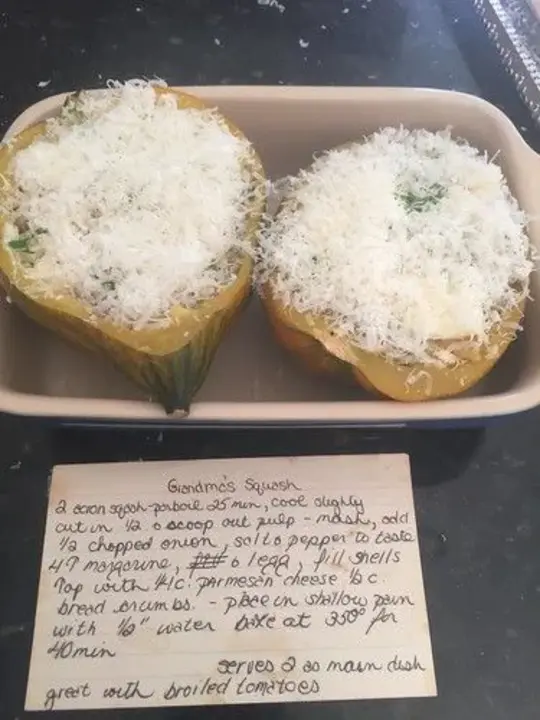 Grandma's Squash
2 acron squash-parboil 25 min, cool slightly
cut in 1/2 & scoop out pulp - mash, add
1/2 chopped onion, salt & pepper to taste
4 T margarine, & 1 egg, fill shells
Top with 1/4 c. parmesan cheese 1/2 c.
bread crumbs. - place in shallow pan
with 1/2" water bake at 350° for
40 min
serves 2 as main dish
great with broiled tomatoes